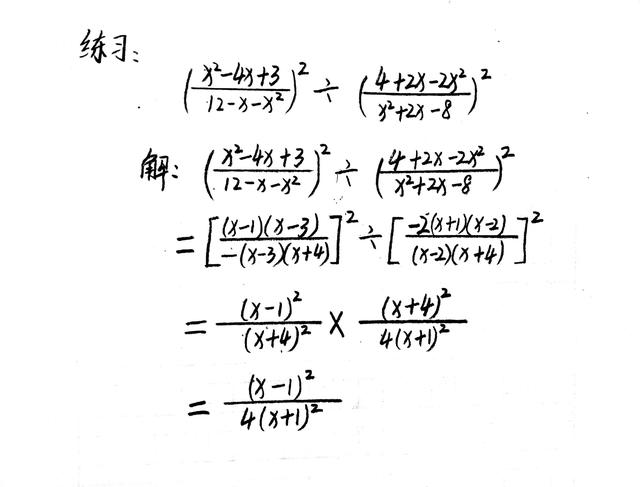 练习:
(x²-4x+3/12-x-x²)² ÷ (4+2x-2x²/x²+2x-8)²
解: (x²-4x+3/12-x-x²)² ÷ (4+2x-2x²/x²+2x-8)²
= [(x-1)(x-3)/-(x-3)(x+4)]² ÷ [-2(x+1)(x-2)/(x-2)(x+4)]²
= (x-1)²/(x+4)² × (x+4)²/4(x+1)²
= (x-1)²/4(x+1)²